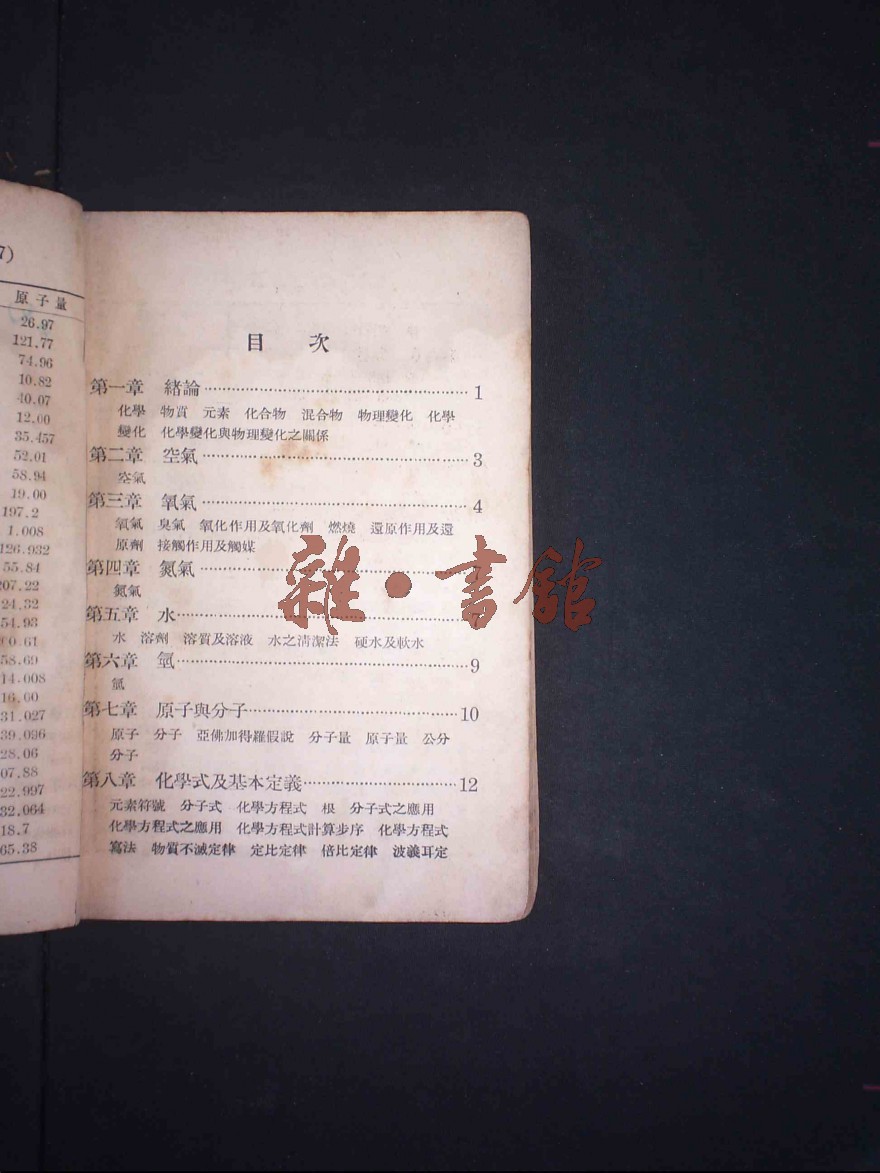 7)
原子量
26.97
121.77
74.96
10.82
40.07
12.00
35.457
52.01
58.94
19.00
197.2
1.008
126.932
55.84
207.22
24.32
54.93
0.61
58.69
14.008
16.00
31.027
39.096
28.06
07.88
22.997
32.064
18.7
65.38
目 次
第一章 緒論 1
化學 物質 元素 化合物 混合物 物理變化 化學
變化 化學變化與物理變化之關係
第二章 空氣 3
空氣
第三章 氧氣 4
氧氣 臭氣 氧化作用及氧化劑 燃燒 還原作用及還
原劑 接觸作用及觸媒
第四章 氮氣
氮氣
第五章 水
水 溶劑 溶質及溶液 水之清潔法 硬水及軟水
第六章 氫 9
氫
第七章 原子與分子 10
原子 分子 亞佛加得羅假說 分子量 原子量 公分
分子
第八章 化學式及基本定義 12
元素符號 分子式 化學方程式 根 分子式之應用
化學方程式之應用 化學方程式計算步序 化學方程式
寫法 物質不滅定律 定比定律 倍比定律 波義耳定
雜·書館